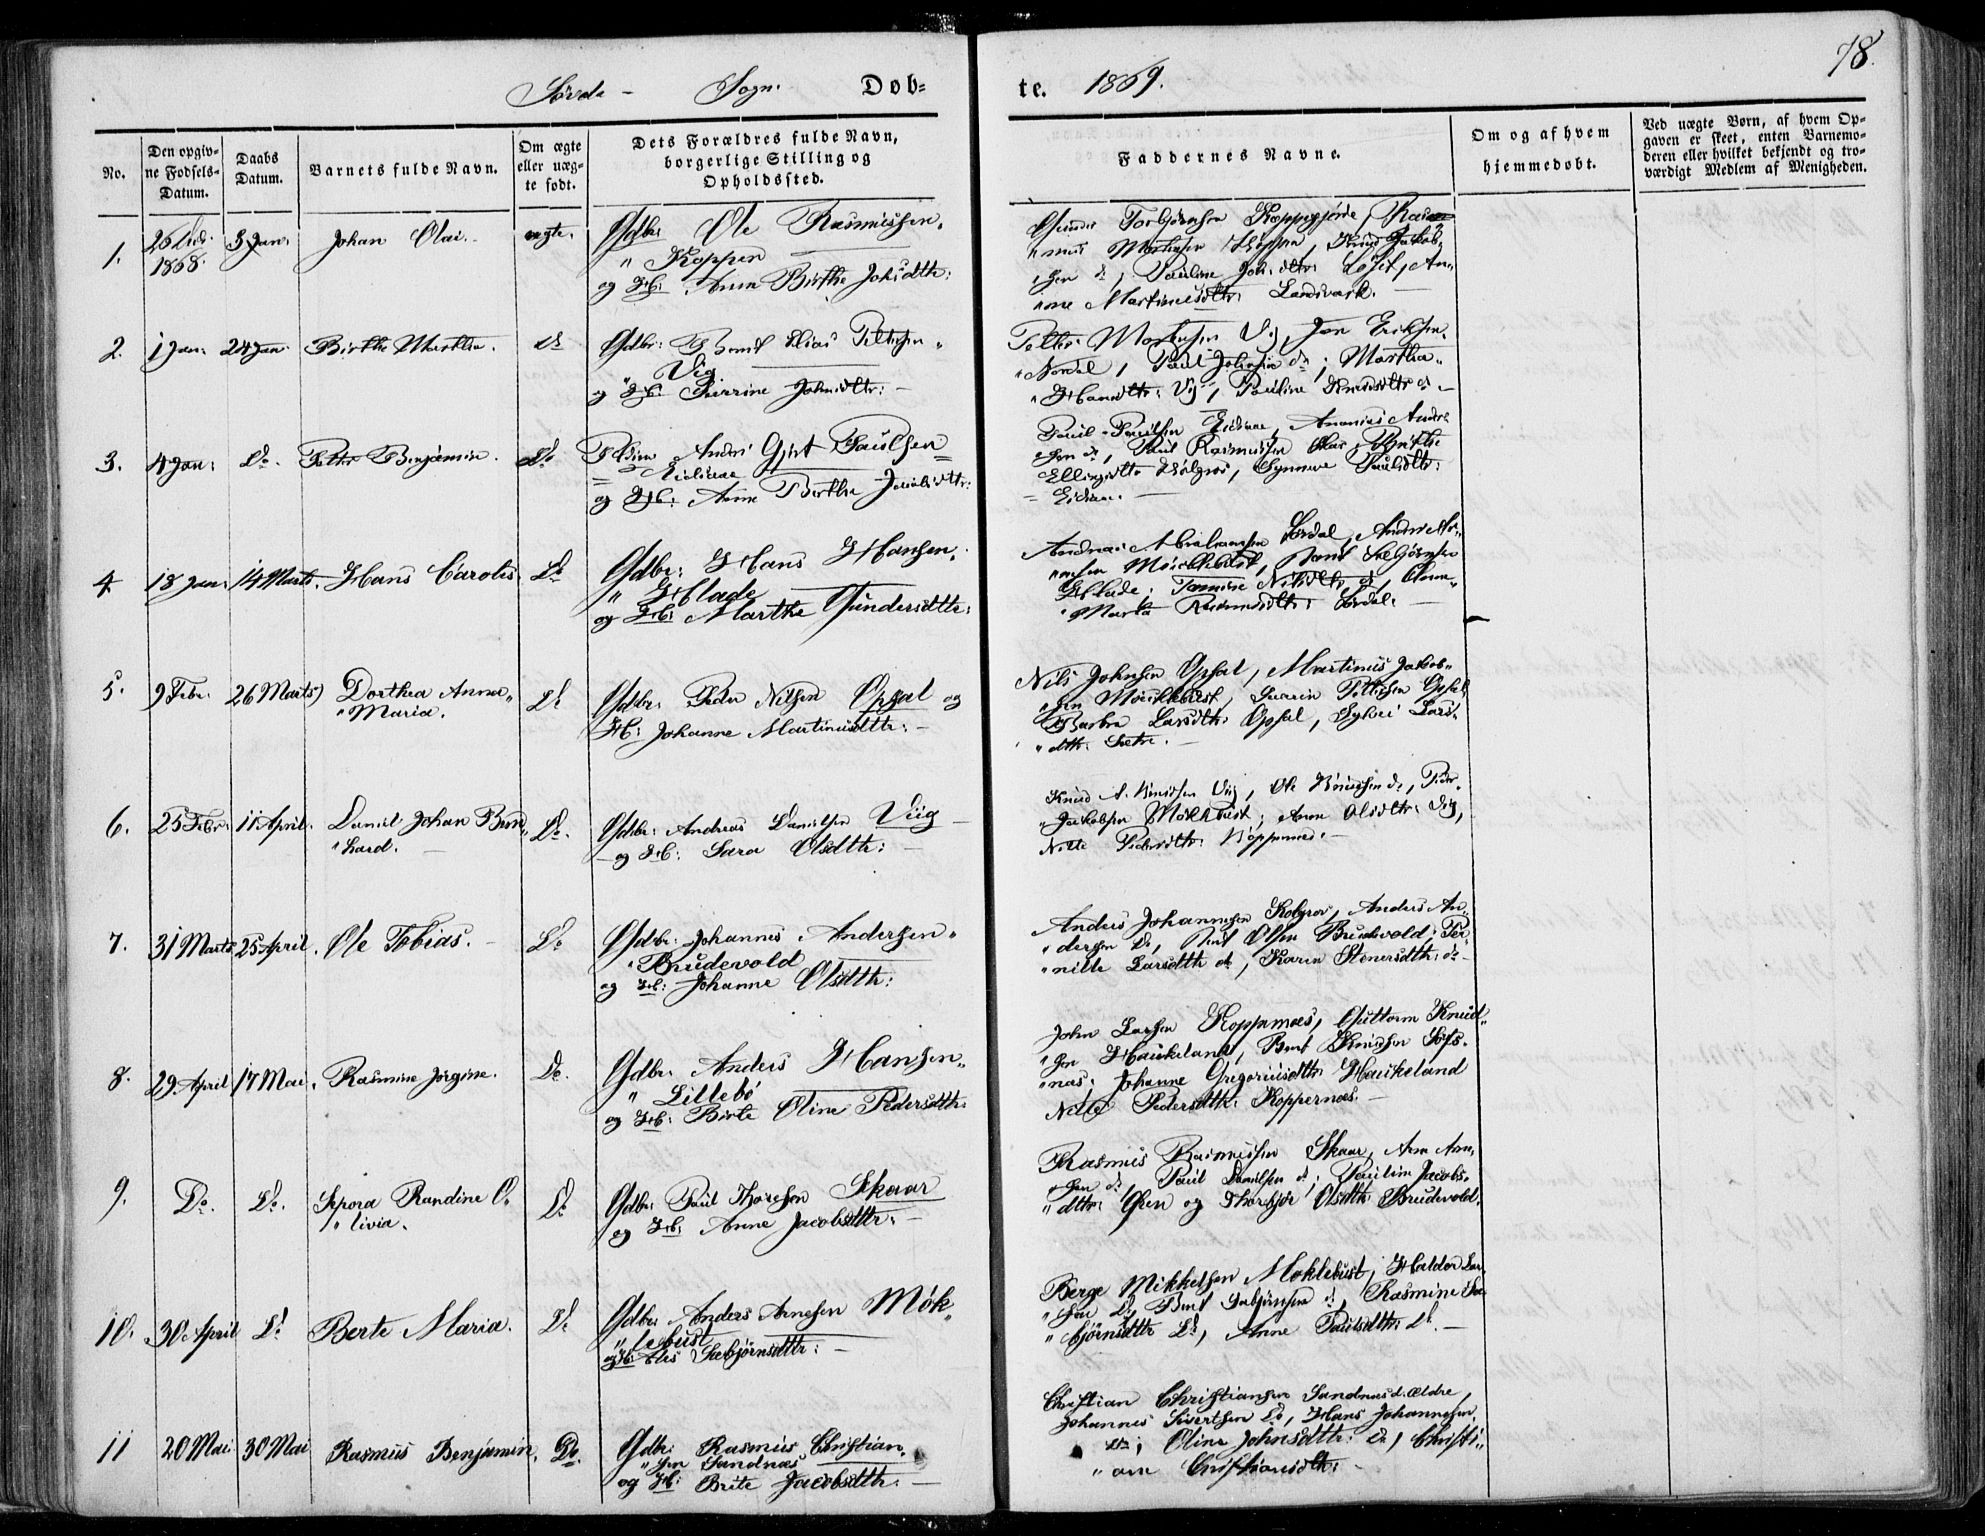 Søvde - Sogn. Døb=
te. 1869.
78.
No.
Den opgiv-
ne Fødsels-
Datum.
Daabs
Datum.
Barnets fulde Navn.
Om ægte
eller uæg-
te født.
Dets Forældres fulde Navn,
borgerlige Stilling og
Opholdssted.
Faddernes Navne.
Om og af hvem
hjemmedøbt.
Ved uægte Børn, af hvem Op-
gaven er skeet, enten Barnemo-
deren eller hvilket bekjendt og tro-
værdigt Medlem af Menigheden.
1. 1868. 3 Jan: Johan Olai. ægte.
Gdbr: Ole Rasmussen
" Koppen
og Hb: Anna Birthe Johsdtr:
Gunder Torbjørnsen Koppegjerde, Ras=
"mus Martinsen Koppen, Knud Jakob=
"sen do, Pauline Joh:dtr:
"ne Martinusdtr: Landsværk.
2. 1 Jan: 24 Jan: Birthe Marthe. do
Gdbr: Bernt Elias Pettersen
" Vig
og Hb: Johnsdtr:
Petter Mortensen Vig, Jon Eriksen
"Nordal, Paul Johnsen do; Martha
"Hansdtr: Vig, Pauline Knudsdtr do
3. 4 Jan: Do. Petter Benjamin. Do
Anders Gjert Paulsen
= Eidsaae
og Hb: Anne Berthe Jacobsdtr:
Paul Paulsen Eidsaae, Ananias Andre=
sen do, Paul Rasmussen Skar, Berithe
Ellingsdtr Kolgrov, Synneve Paulsdtr:
= Eidsaae.
4. 18 Jan: 14 Marts. Hans Carolis. Do
Gdbr: Hans Hansen.
" Hflade
og Hb: Marthe Gundersdtr:
Andreas Abrahamsen Sørdal,
Møcklebust, Bernt
Hflade; Nilsdtr, do,
" Marta Rasmusdtr: Sørdal.
5. 9 Febr: 26 Marts Dorthea Anna
"Maria. Do
Gdbr: Peder Nilsen Opsal og
H: Johanne Martinusdtr:
Nils Johnsen Opsal, Martinus Jakob=
"sen Mocklebust, Pettersen Opsal,
Barbra Larsdtr: Opsal, Sylvei Lars=
"dtr: Sætre.
6. 25 Febr: 11 April. Daniel Johan Bern=
"hard. Do.
Gdbr: Andreas Danielsen Viig
og Hb: Sara Olsdtr:
Knud A. Knudsen Viig, Ole Knudsen do, Peder
"Jakobsen Møklebust; Anne Olsdtr: Vig,
Nille Pedersdtr: Koppernæs.
7. 31 Marts 25 April. Ole Tobias. Do
Gdbr: Johannes Andersen
" Brudevold
og Hb: Johanne Olsdtr:
Anders Johannesen Kolgrov, Anders An=
"dersen do, Bent Olsen Brudevold; Per=
"nille Larsdtr do, Karen Stenersdtr: do
8. 29 April 17 Mai. Rasmine Jørgine. Do.
Gdbr: Anders Hansen
" Lillebø
og Hb: Birte Oline Pedersdtr:
John Larsen Koppernæs, Guttorm Knud=
"sen Haukeland, Bent Knudsen Søfs=
"næs; Johanne Gregoriusdtr: Haukeland
Nille Pedersdtr: Koppernæs.
9. Do. Do. Sepora Randine O=
"livia. Do
Gdbr: Paul Thoresen Skaar
og Hb: Anne Jacobsdtr:
Rasmus Rasmussen Skaar, Arn Arn=
"sen do Paul Danielsen do; Paulin Jacobs=
"dtr: Osen og Olsdtr Brudevold.
10. 30 April Do Berte Maria. Do
Gdbr: Anders Arnesen Møk=
"lebust
og Hb: Sæbjørnsdtr:
Berge Mikkelsen Moklebust, Haldor Lar=
"sen Do, Bent Sæbjørnsen do, Rasmine Sæ=
"bjørnsdtr Do, Anne Paulsdtr: Do.
11 20 Mai 30 Mai Rasmus Benjamin. Do.
Gdbr: Rasmus Christian=
"sen Sandnæs
og Hb: Brite Jacobsdtr:
Christian Christiansen Sandnæs d. Ældre,
Johannes Sivertsen Do, Hans Johannesen
do; Oline Johnsdtr: do, Christi=
"ane Christiansdtr: